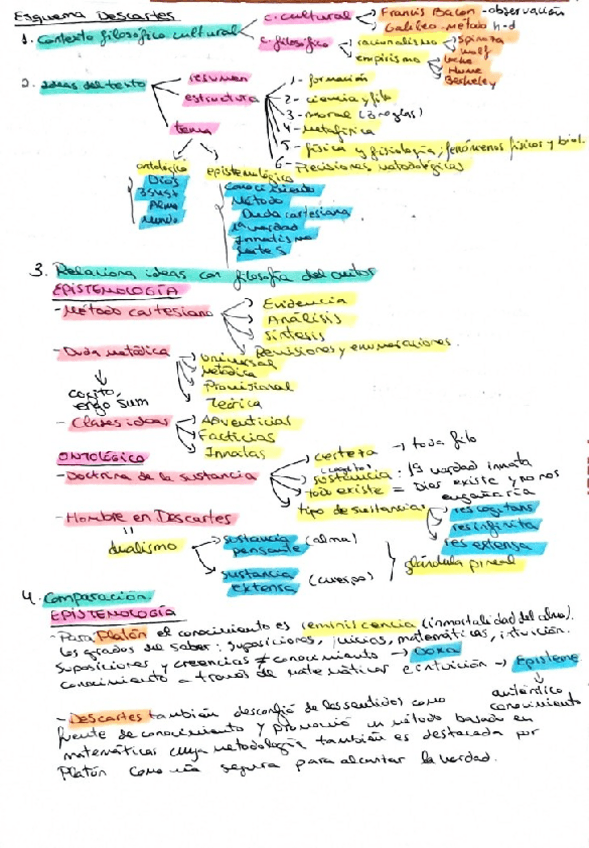 Esquema Descartes
1. Contexto filosófico cultural
c. cultural
Francis Bacon - observación
Galileo - método h-d
c. filosófico
racionalismo
Spinoza
Wolf
empirismo
Locke
Hume
Berkeley
2. Ideas del texto
resumen
estructura
1- formación
2- ciencia y filo.
3- moral (3 reglas)
4- metafísica
5- física y fisiología, fenómenos físicos y biol.
6- Precisiones metodológicas
tema
ontológico
Dios
Alma
Mundo
epistemológico
Conocimiento
Método
Duda cartesiana
1ª verdad
Innatismo
3. Relaciona ideas con filosofía del autor
EPISTEMOLOGÍA
- Método cartesiano
Evidencia
Análisis
Síntesis
Revisiones y enumeraciones.
- Duda metódica
Universal
Metódica
Provisional
Teórica
cogito
ergo sum
- Clases ideas
Adventicias
Facticias
Innatas
ONTOLÓGICO
- Doctrina de la sustancia
certeza → toda filo
(cogito)
sustancia: 1ª verdad innata
todo existe = Dios existe y no nos
engañaría
tipo de sustancias
res cogitans
res infinita
res extensa
- Hombre en Descartes
dualismo
sustancia
pensante (alma)
sustancia
extensa (cuerpo)
glándula pineal
4. Comparación.
EPISTEMOLOGÍA
- Para Platón el conocimiento es reminiscencia (inmortalidad del alma).
Los grados del saber: suposiciones, matemáticas, intuición.
Suposiciones, y creencias ≠ conocimiento → Doxa
conocimiento a través de matemáticas e intuición → Episteme
auténtico
conocimiento
- Descartes también desconfió de los sentidos como
fuente de conocimiento y promovió un método basado en
matemáticas cuya metodología también es destacada por
Platón como vía segura para alcanzar la verdad.